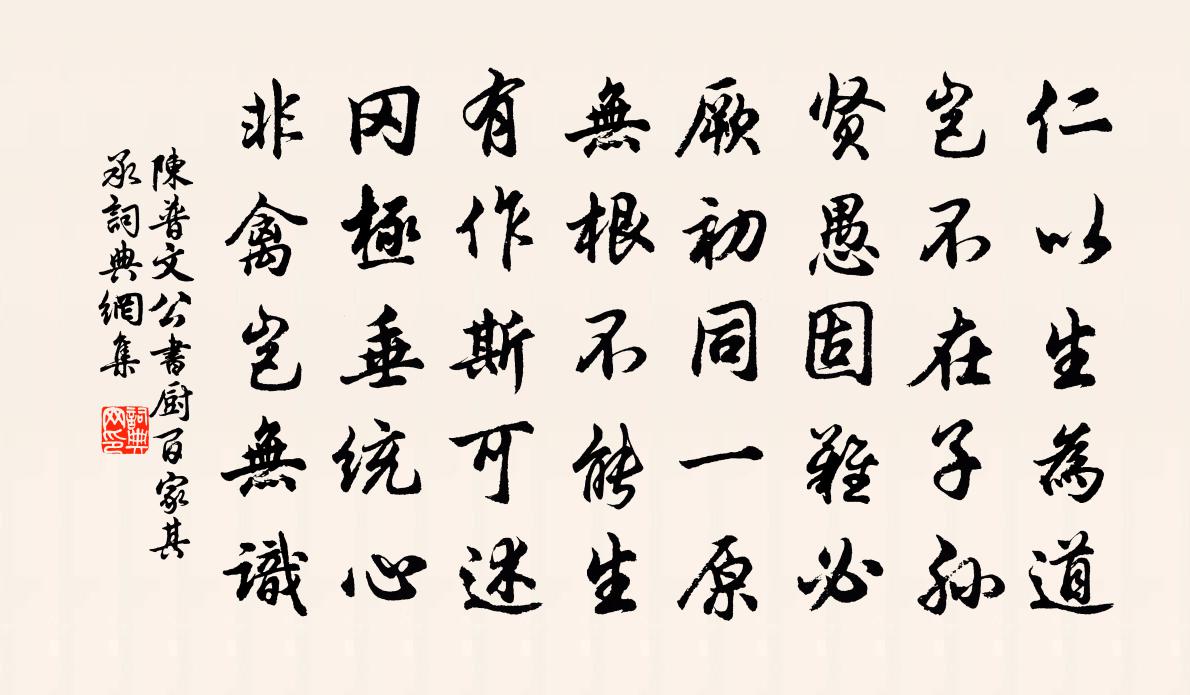 仁以生為道
豈不在子孫
贤愚固難必
厥初同一原
無根不能生
有作斯可述
罔極垂統心
非禽豈無識
陳普文公書厨百家其
承詞典網集
詞典
网印